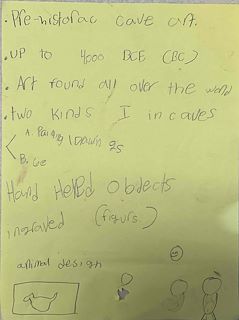 Pre-historac cave art.
• UP to 4000 BCE (BC)
• Art found all over the world
• two kinds I in caves
A. Paining | Drawings
B.
Hand Helbd objects
ingraved (figurs.)
animal design